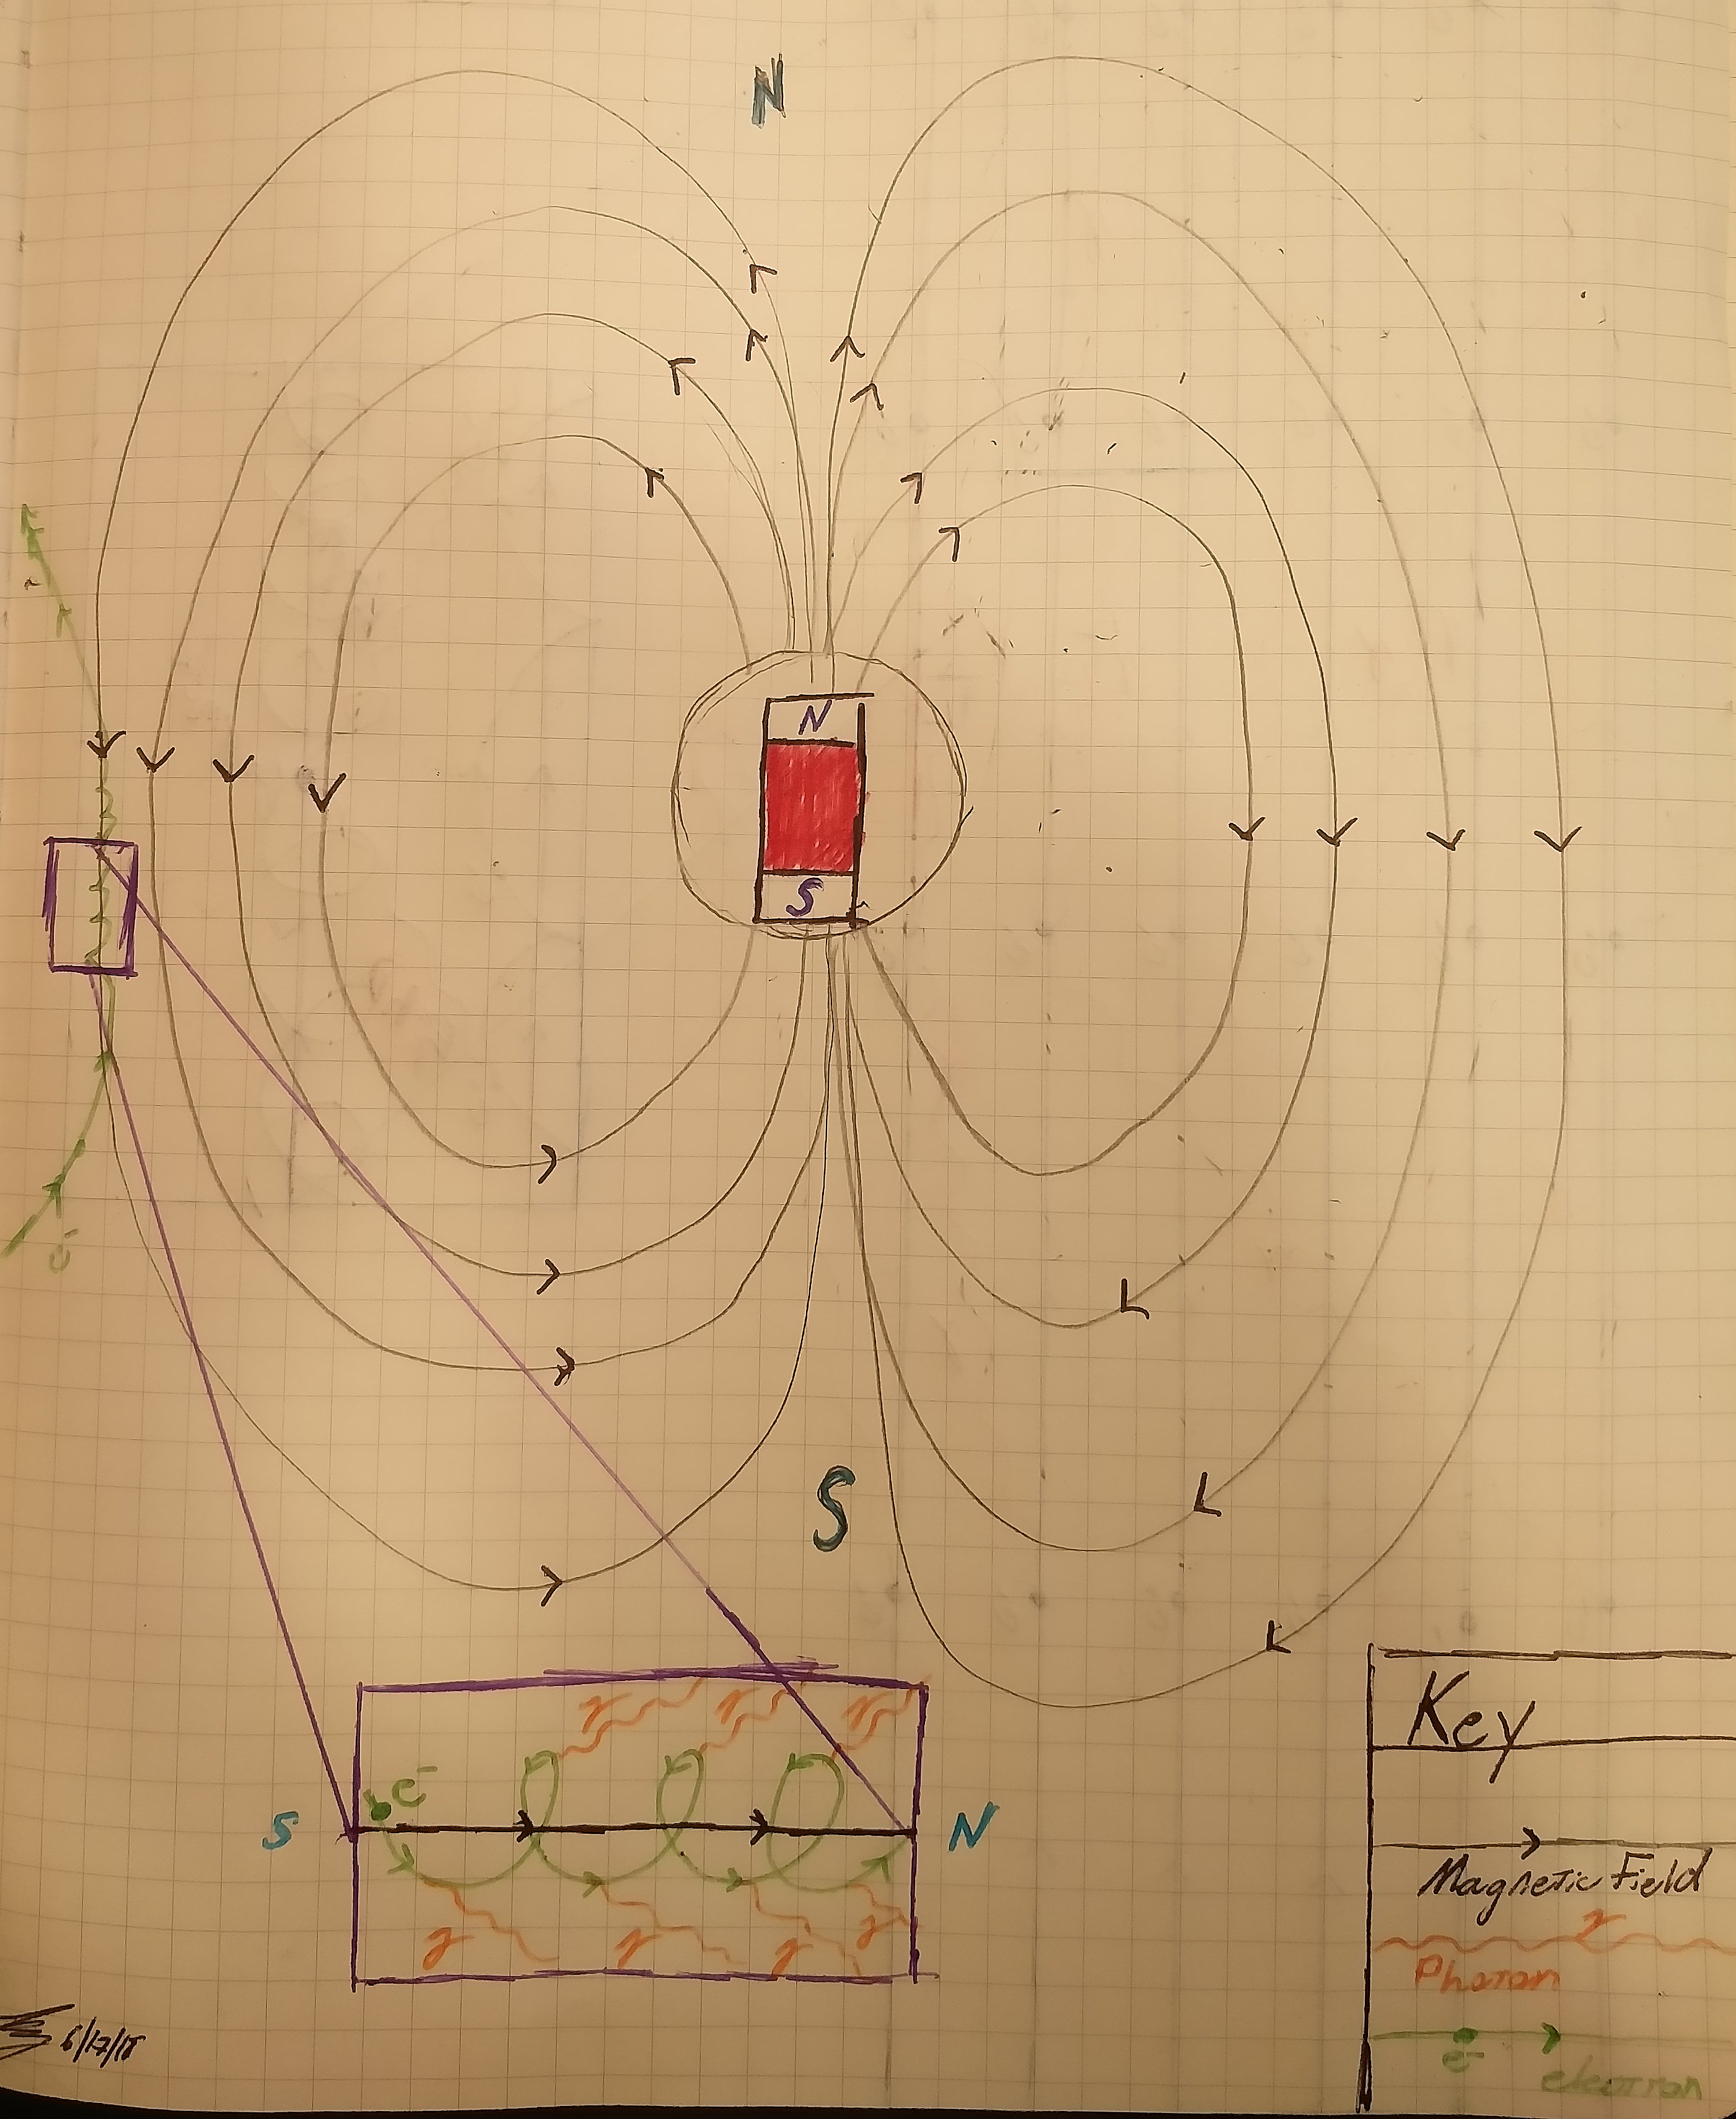 N
N
S
e-
S
γ γ γ
e-
S N
γ γ γ γ
Key
Magnetic Field
γ
Photon
e-
electron
6/17/18